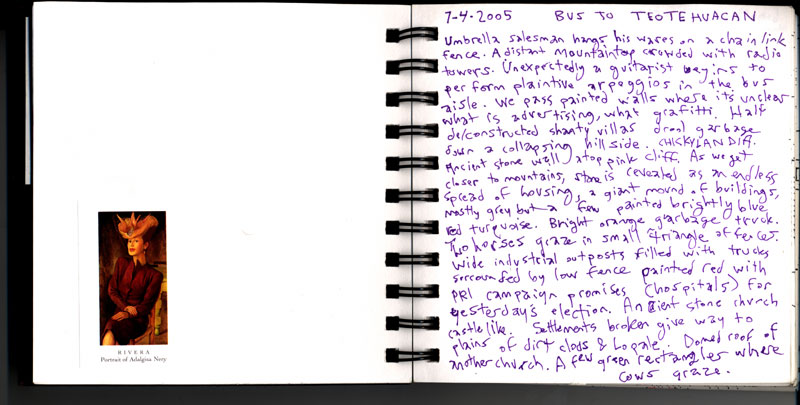 RIVERA
Portrait of Adalgisa Nery
7-4-2005 BUS TO TEOTEHUACAN
Umbrella salesman hangs his wares on a chain link
fence. A distant mountaintop crowded with radio
towers. Unexpectedly a guitarist begins to
perform plaintive arpeggios in the bus
aisle. We pass painted walls where its unclear
what is advertising, what grafitti. Half
de/constructed shanty villas drool garbage
down a collapsing hillside. CHISKYLANDIA.
Ancient stone wall atop pink cliff. As we get
closer to mountains, stone is revealed as an endless
spread of housing, a giant mound of buildings,
mostly grey but a few painted brightly blue
red turquoise. Bright orange garbage truck.
Two horses graze in small triangle of fences.
Wide industrial outposts filled with trucks
sorrounded by low fence painted red with
PRI campaign promises (hospitals) for
yesterday's election. Ancient stone church
castlelike. Settlements broken give way to
plains of dirt clods & nopale. Domed roof of
another church. A few green rectangles where
cows graze.